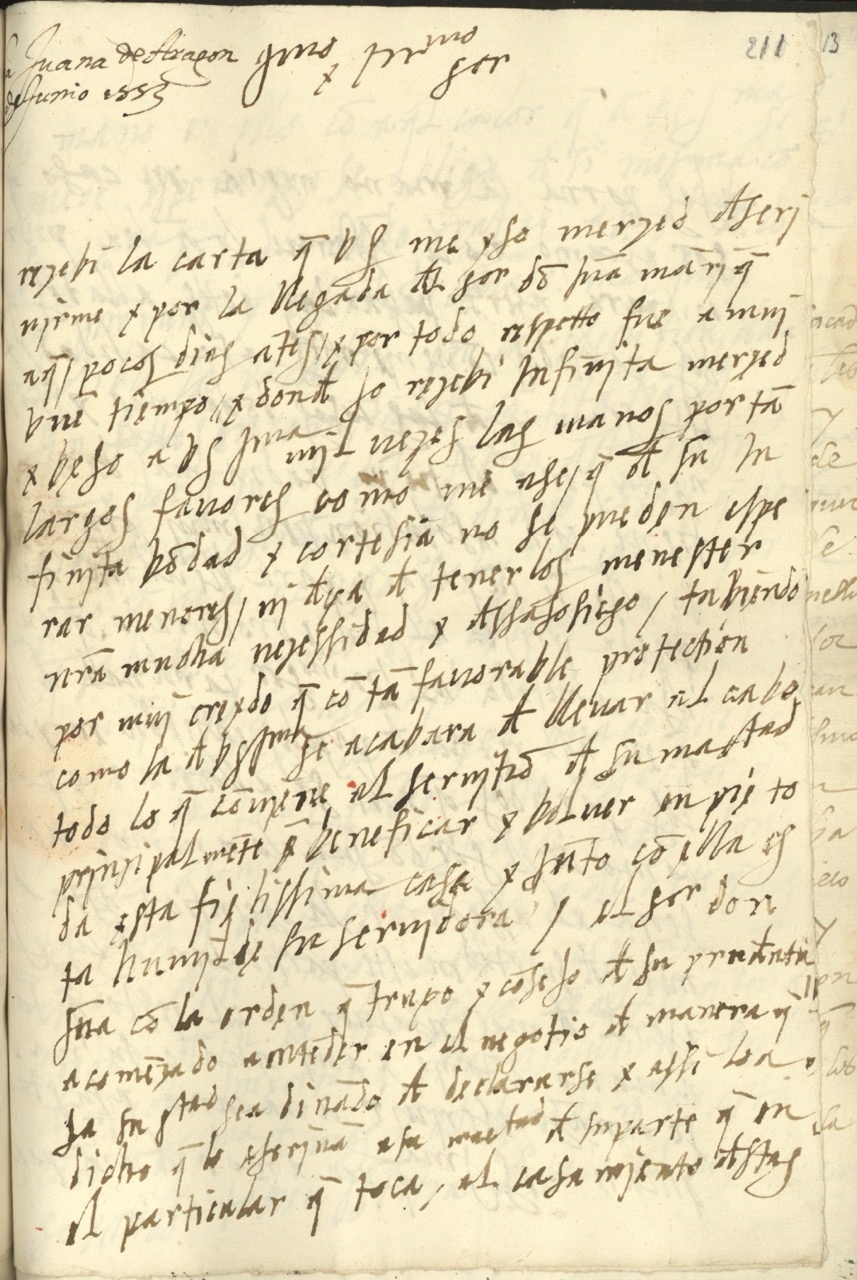 Juana de Aragon
de Junio 1553
Illmo y Rmo
sor
211 13
rezebi la carta q̃ VS me yzo merzed descri
uirme y por la llegada del sor dõ Juã mãriq̃
aq̃/ pocos dias ãtes/ y por todo respetto fue a mui
buẽ tiempo/ y donde yo rezebi infinita merzed
y beso a VS Illma mil vezes las manos por tã
largos favores como me aze/ q̃ de su in
finita bõdad y cortesia no se pueden espe
rar menores/ ni dexa de tenerlos menester
nrã mucha nezessidad y dessasosiego / tubiendo
por mui creydo q̃ cõ tã favorable protection
como la de VS Illma se acabara de llevar al cabo
todo lo q̃ cõviene al servitio de su magtad
prinzipalmẽte ẽ beneficar y bolver en pie to
da esta fielissima casa y junto cõ ella es
ta humilde su servidora / el sor don
Juã cõ la orden q̃ truxo y cõsejo de su prudentia
a comẽzado a ẽtẽder en el negotio de manera q̃
su Stad sea dinado de declararse y assi lo a
dicho q̃ lo escriuã a su magtad de su parte q̃ en
el particular q̃ toca / al casamiento destas